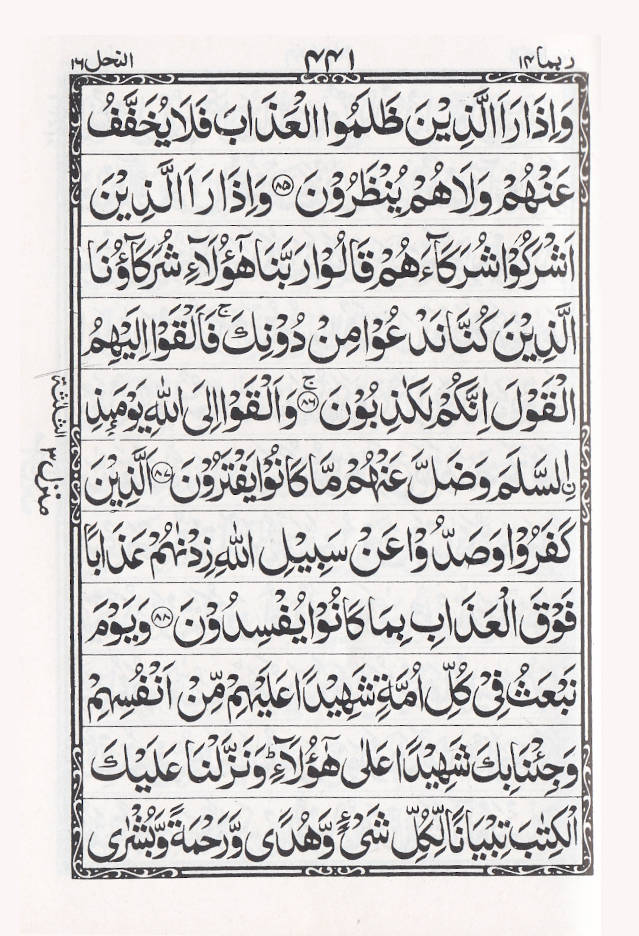 ربما ١٤
٤٤١
النحل ١٦
وَاِذَا رَاَ الَّذِيْنَ ظَلَمُوا الْعَذَابَ فَلَا يُخَفَّفُ
عَنْهُمْ وَلَا هُمْ يُنْظَرُوْنَ ﴿٨٥﴾ وَاِذَا رَاَ الَّذِيْنَ
اَشْرَكُوْا شُرَكَآءَهُمْ قَالُوْا رَبَّنَا هٰٓؤُلَآءِ شُرَكَآؤُنَا
الَّذِيْنَ كُنَّا نَدْعُوْا مِنْ دُوْنِكَ ۚ فَاَلْقَوْا اِلَيْهِمُ
الْقَوْلَ اِنَّكُمْ لَكٰذِبُوْنَ ﴿٨٦﴾ۚ وَاَلْقَوْا اِلَى اللّٰهِ يَوْمَئِذِ
ࣙالسَّلَمَ وَضَلَّ عَنْهُمْ مَّا كَانُوْا يَفْتَرُوْنَ ﴿٨٧﴾ اَلَّذِيْنَ
كَفَرُوْا وَصَدُّوْا عَنْ سَبِيْلِ اللّٰهِ زِدْنٰهُمْ عَذَابًا
فَوْقَ الْعَذَابِ بِمَا كَانُوْا يُفْسِدُوْنَ ﴿٨٨﴾ وَيَوْمَ
نَبْعَثُ فِيْ كُلِّ اُمَّةٍ شَهِيْدًا عَلَيْهِمْ مِّنْ اَنْفُسِهِمْ
وَجِئْنَا بِكَ شَهِيْدًا عَلٰى هٰٓؤُلَآءِ ؕ وَنَزَّلْنَا عَلَيْكَ
الْكِتٰبَ تِبْيَانًا لِّكُلِّ شَيْءٍ وَّهُدًى وَّرَحْمَةً وَّبُشْرٰى
منزل ٣
الثلثة